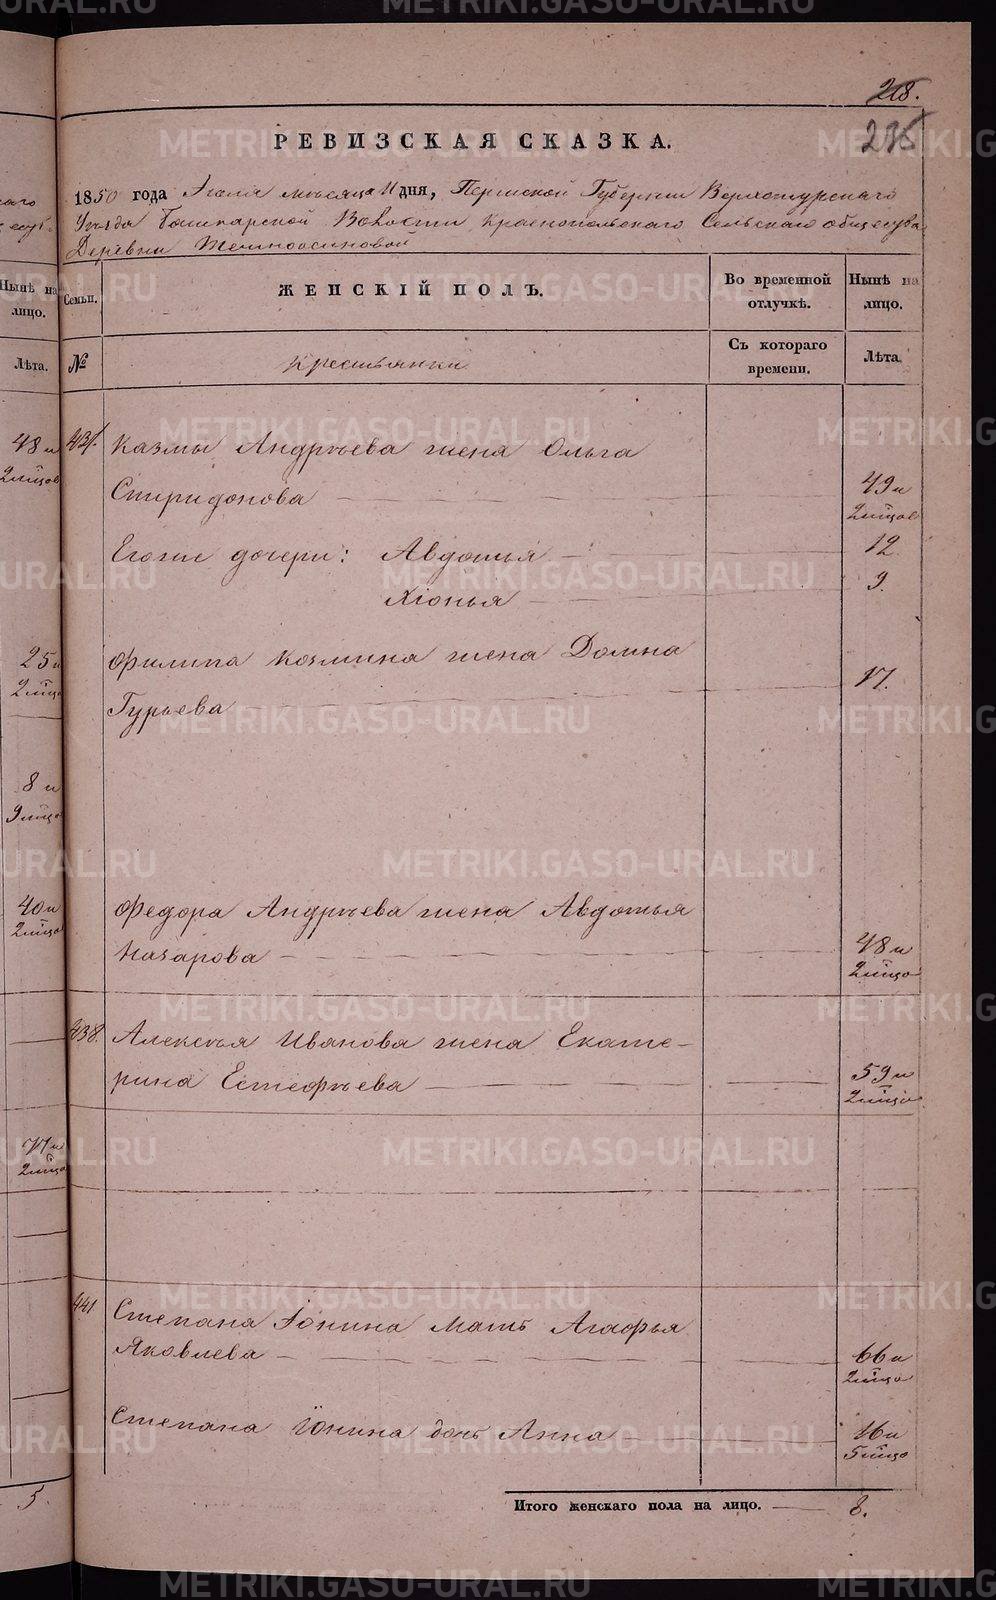 218.
235
РЕВИЗСКАЯ СКАЗКА.
1850 года Июля месяца 11 дня, Пермской Губернии Верхотурскаго
Уѣзда Башкарской Волости Краснопольскаго Сельскаго общества
Деревни Темноосиновой
Нынѣ на лицо.
Семьи.
ЖЕНСКІЙ ПОЛЪ.
Во временной отлучкѣ.
Нынѣ на лицо.
Лѣта.
№
крестьянки
Съ котораго времени.
Лѣта
48 и
2 мѣсяц
437.
Казмы Андрѣева жена Ольга
Спиридонова
49 и
2 мѣсяц
Егоже дочери: Авдотья
12
Хіонья
9.
25 и
Филипа Козмина жена Домна
Гурьева
17.
8 и
9 мѣсяц
40 и
Федора Андрѣева жена Авдотья
Назарова
48 и
438.
Алексѣя Иванова жена Екате-
рина Естефѣева
59 и
441
Степана Іонина мать Агафья
Яковлева
66 и
Степана Іонина дочь Анна
16 и
5.
Итого женскаго пола на лицо.
8.
METRIKI.GASO-URAL.RU